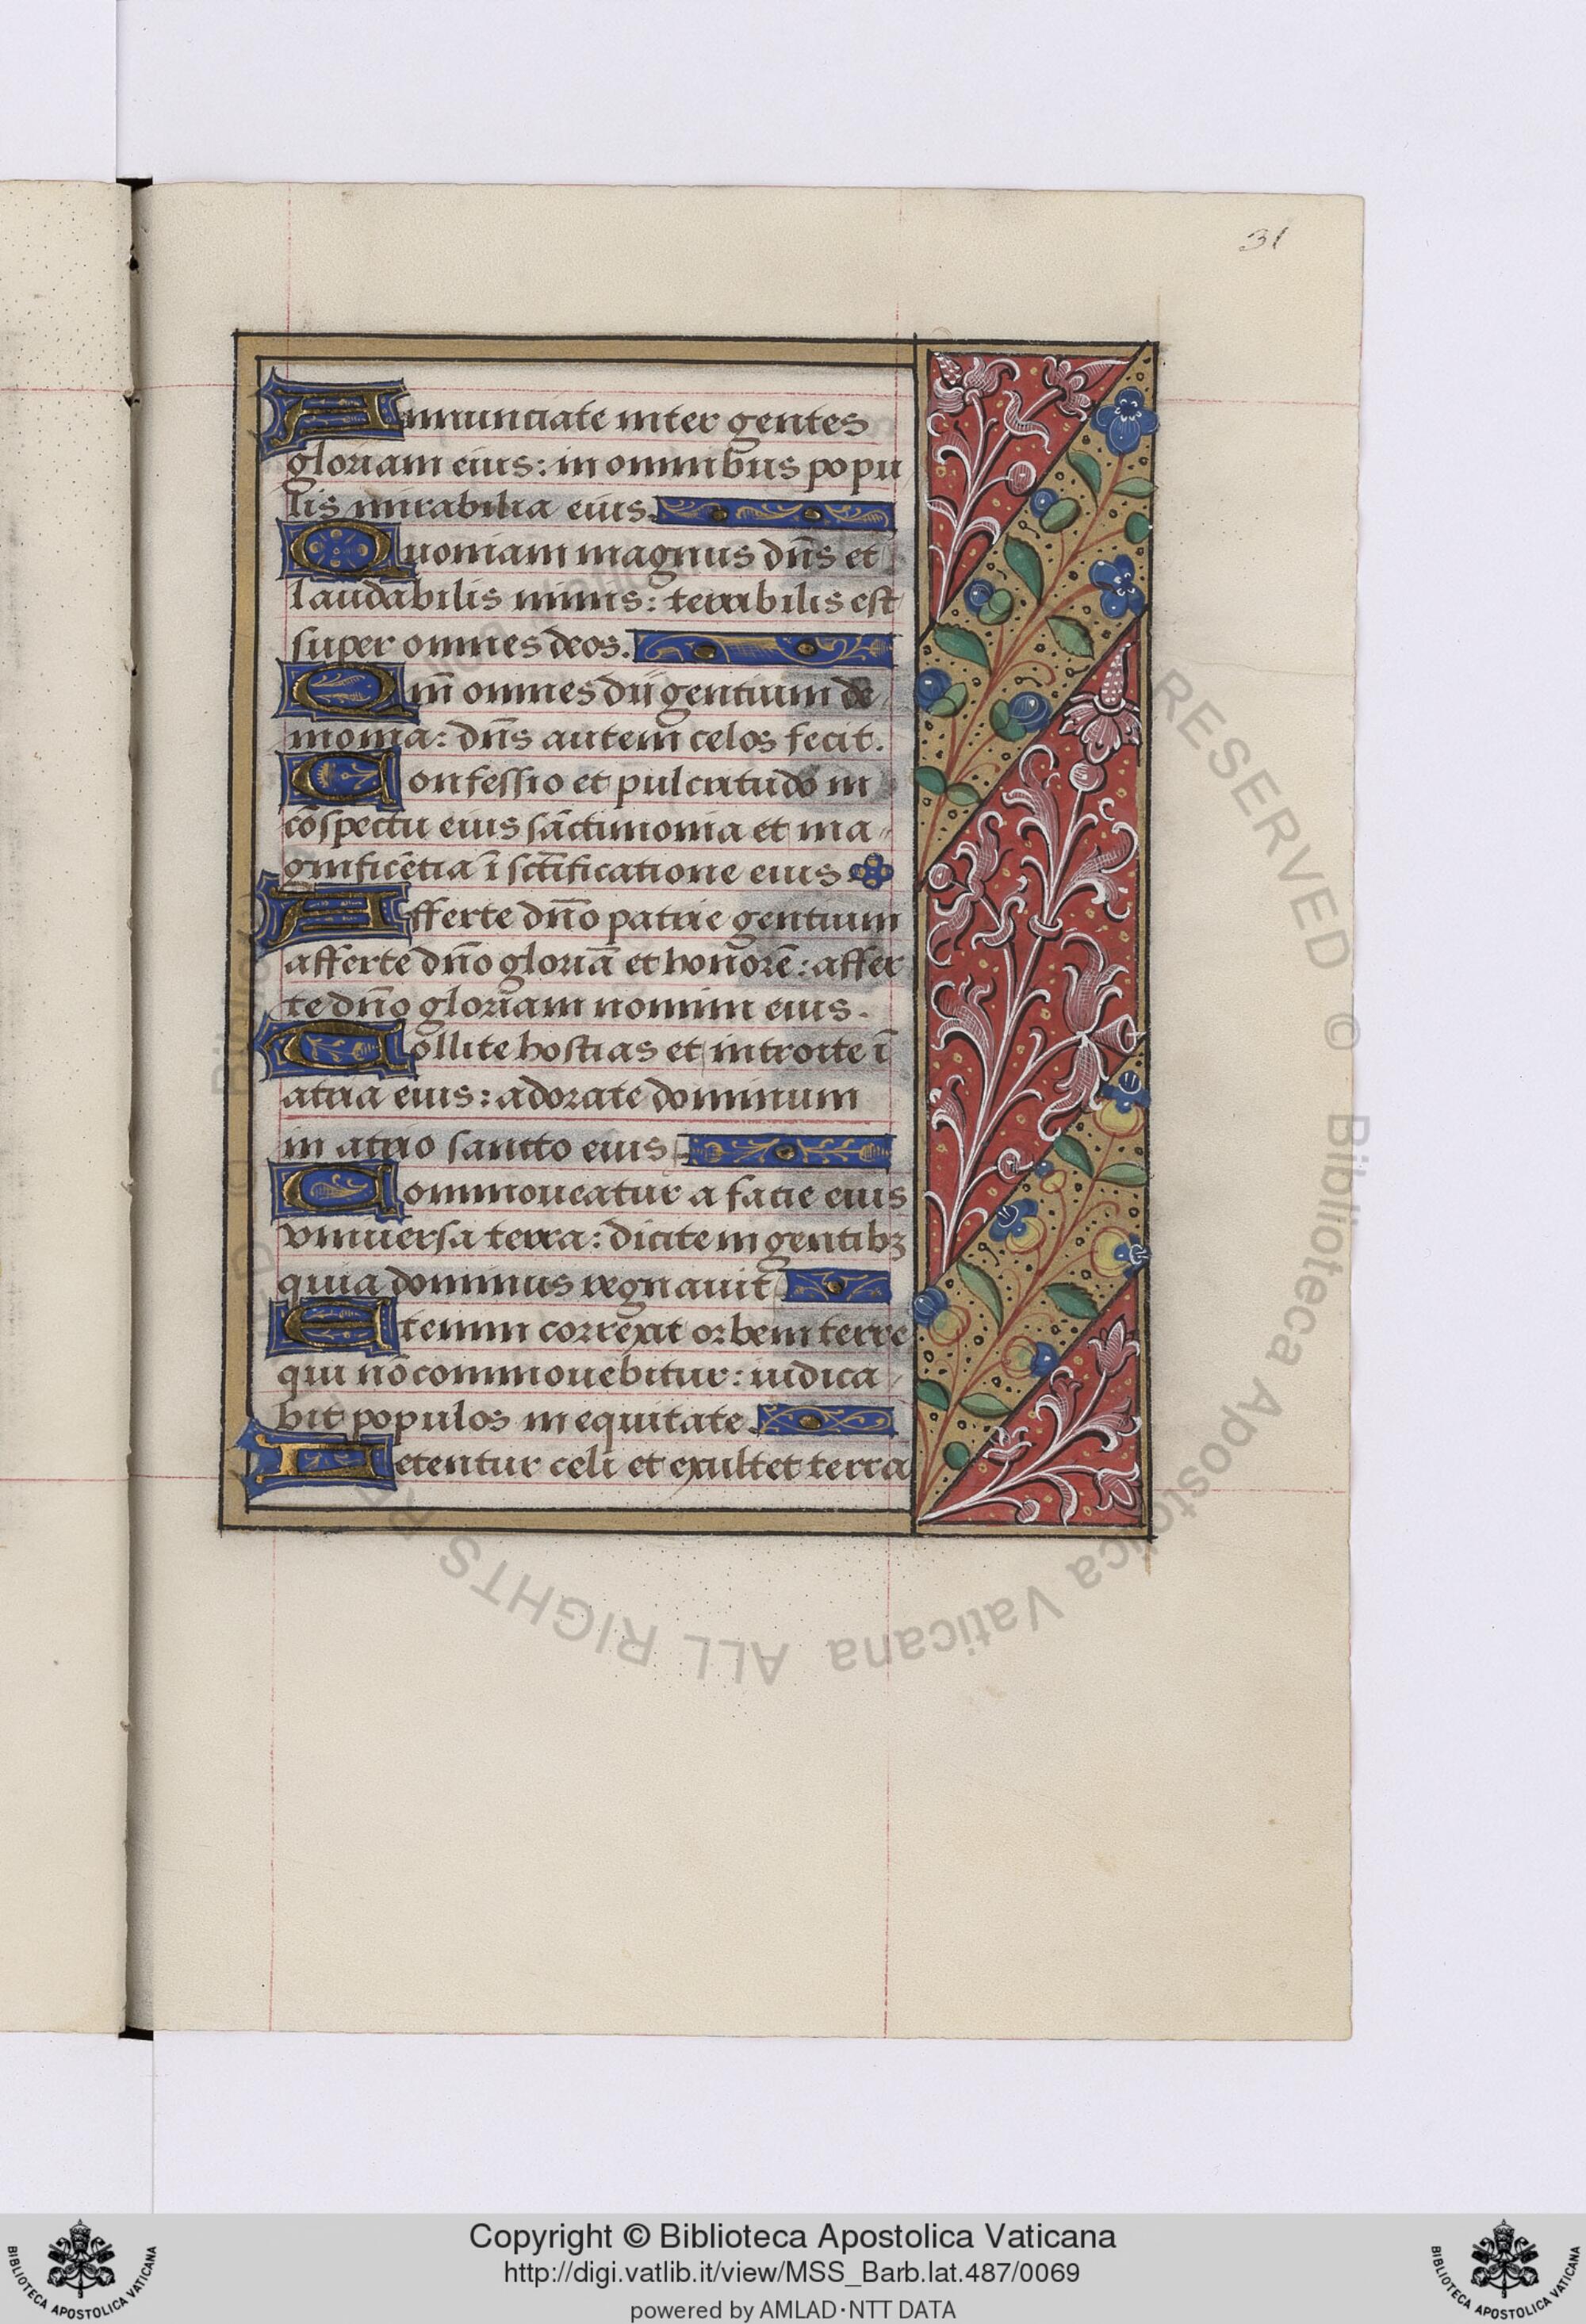 31
Annunciate inter gentes
gloriam eius: in omnibus popu
lis mirabilia eius.
Quoniam magnus dn̄s et
laudabilis nimis: terribilis est
super omnes deos.
Qm̄ omnes dii gentium de
monia: dn̄s autem celos fecit.
Confessio et pulcritudo in
cōspectu eius sāctimonia et ma
gnificētia ī sctīficatione eius
Afferte dn̄o patrie gentium
afferte dn̄o gloriā et honorē: affer
te dn̄o gloriam nomini eius.
Tollite hostias et introite ī
atria eius: adorate dominum
in atrio sancto eius
Commoueatur a facie eius
vniuersa terra: dicite in gentibꝫ
quia dominus regnauit
Etenim correxit orbem terre
qui nō commouebitur: iudica
bit populos in equitate.
Letentur celi et exultet terra
ALL RIGHTS RESERVED © Biblioteca Apostolica Vaticana
BIBLIOTECA APOSTOLICA VATICANA
Copyright © Biblioteca Apostolica Vaticana
http://digi.vatlib.it/view/MSS_Barb.lat.487/0069
powered by AMLAD·NTT DATA
BIBLIOTECA APOSTOLICA VATICANA